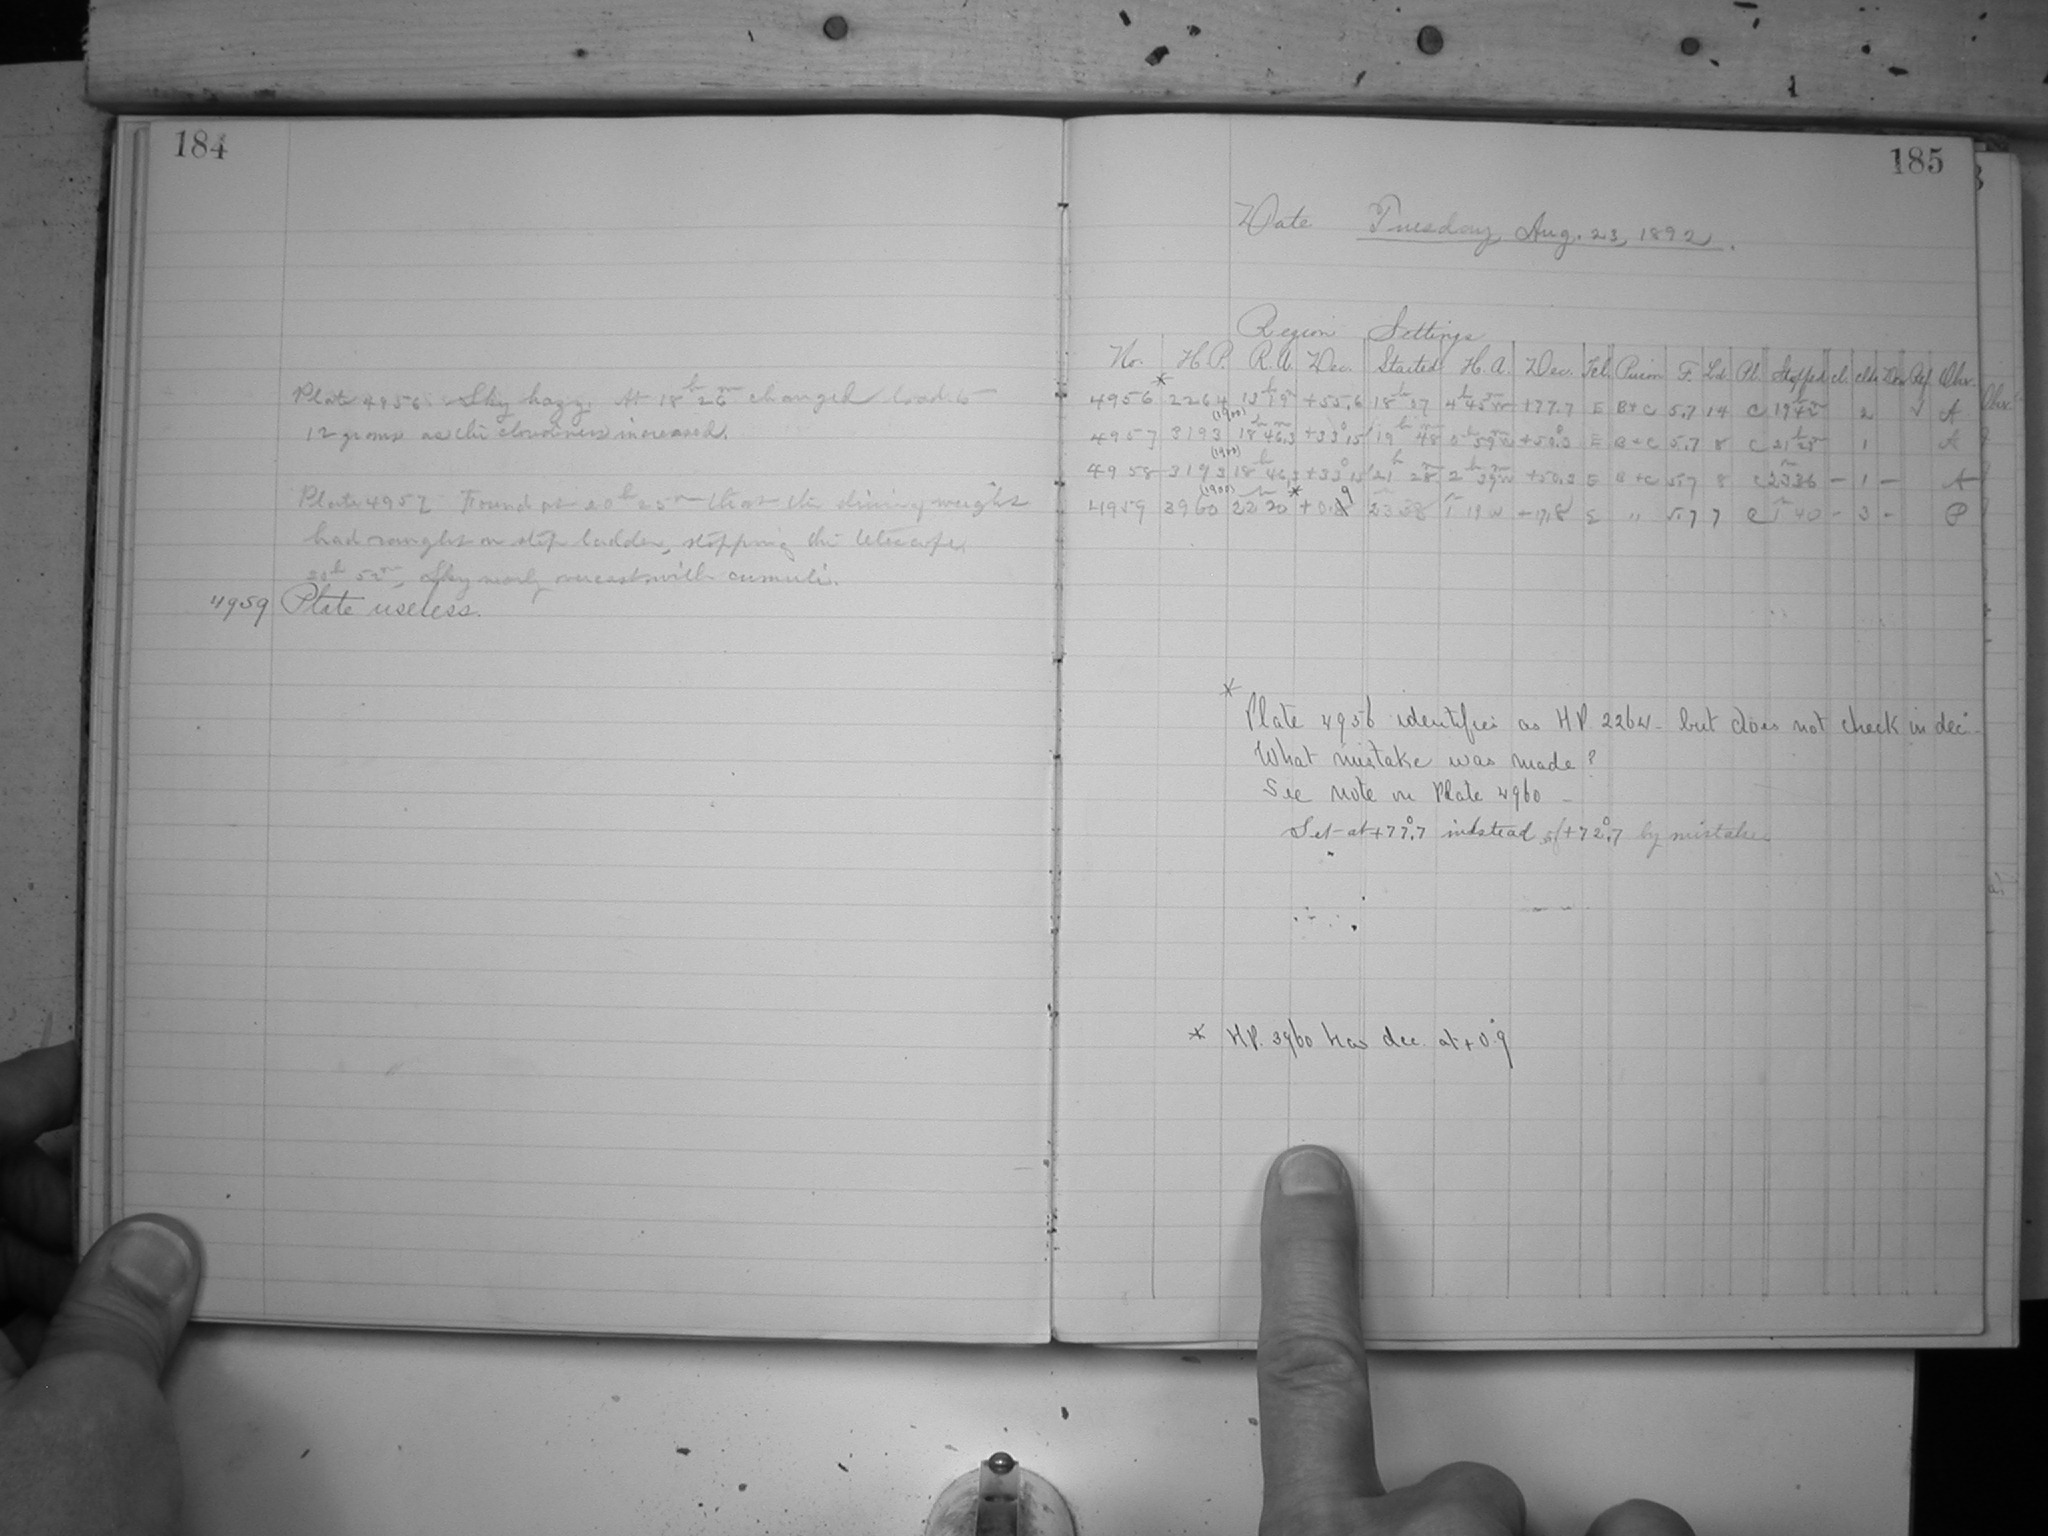 184
Plate 4956. Sky hazy. At 18h 26m changed load to
12 grams as the cloudiness increased.
Plate 4957 Found at 20h 25m that the driving weight
had caught on step ladder, stopping the telescope.
20h 52m, Sky nearly overcast with cumuli.
4959 Plate useless.
185
Date Tuesday, Aug. 23, 1892.
Region Settings
No. H.P. R.A. Dec. Started H.A. Dec. Tel. Prism F. Ld. Pl. Stopped cl. Obsr.
4956 * 2264 13h 19m +55.6 18h 4h 45m w +77.7 E B+C 5.7 14 C 19h 42m 2 √ A
(1900)
4957 3193 18h 46.3m +33° 15' 19h 48m 0h 59m w +50.3 E B+C 5.7 8 C 21h 28m 1 A
(1900)
4958 3193 18h 46.3 +33° 15' 21h 28m 2h 39m w +50.3 E B+C 5.7 8 C 2336 – 1 – A
(1900)
4959 3960 22 20 * +0. 9 23 38 1 19 w +17.8 E " 5.7 7 C 1 40 – 3 – P
*
Plate 4956 identifies as HP 2264 – but does not check in dec –
What mistake was made?
See note on Plate 4960 –
Set at +77°.7 instead of +72°.7 by mistake
* HP. 3960 has dec. at +0°.9